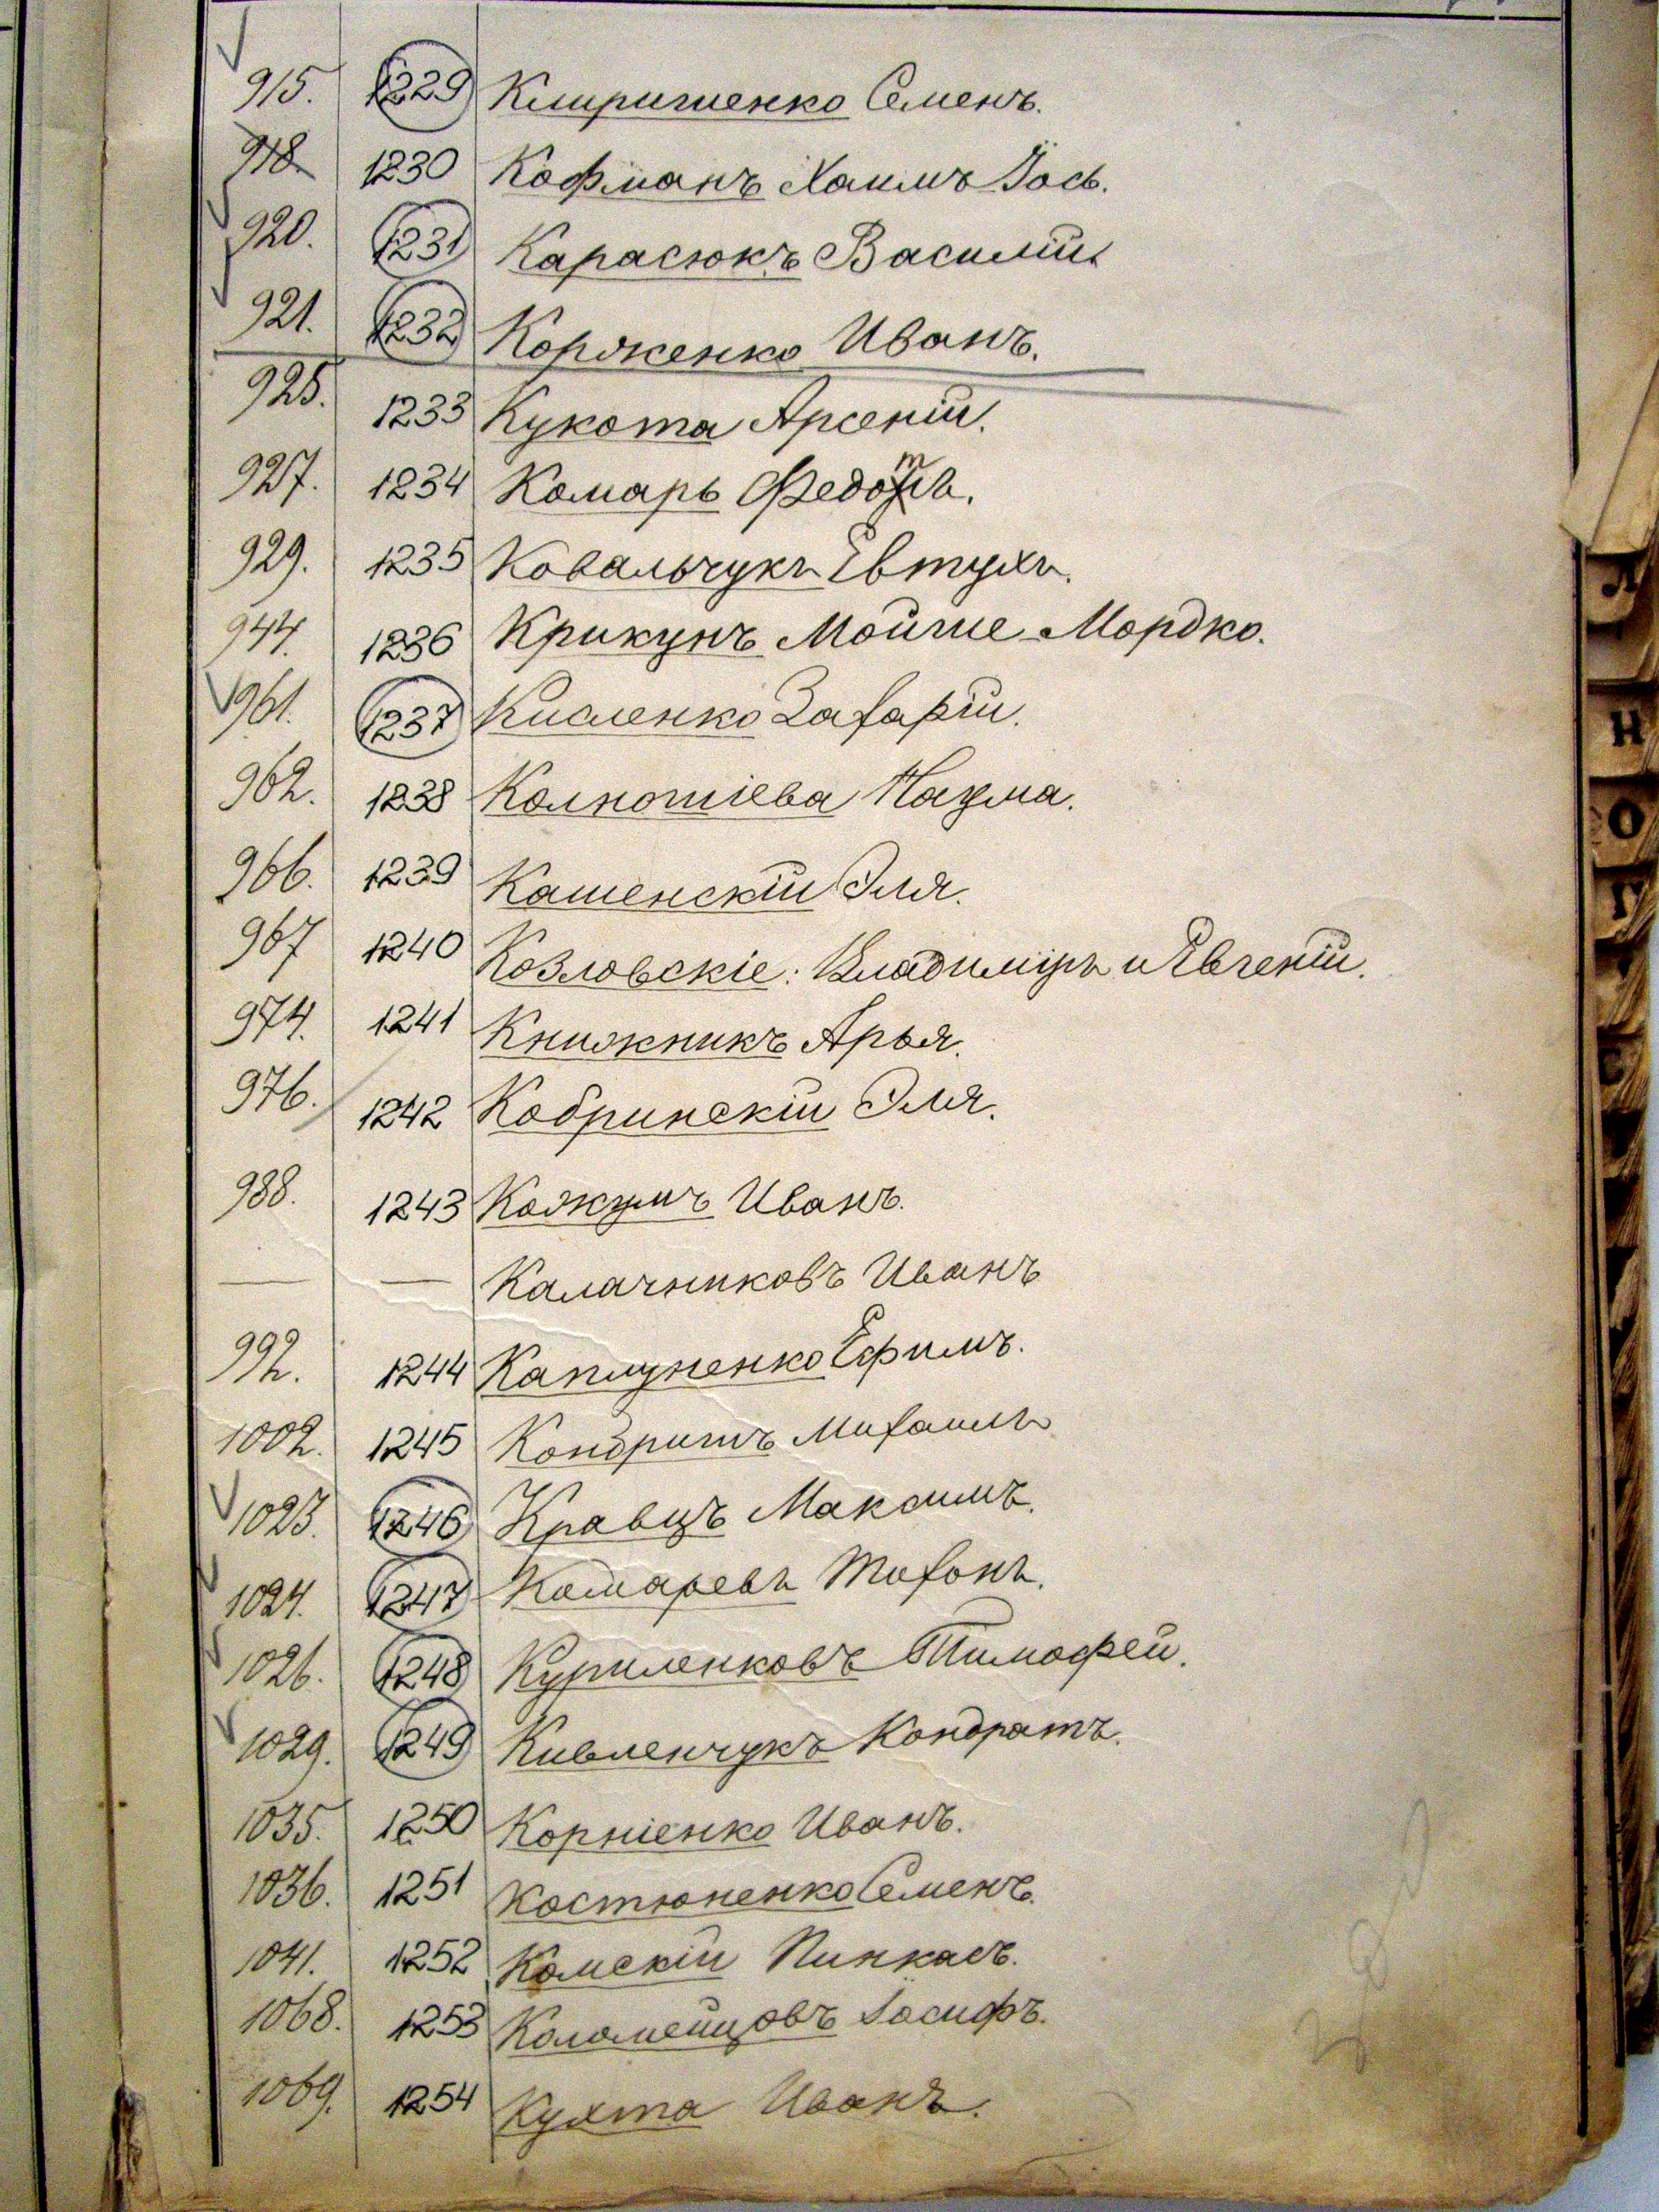 915. 1229 Клиришенко Семенъ.
918. 1230 Кофманъ Хаимъ Іось.
920. 1231 Карасюкъ Василій
921. 1232 Корженко Иванъ.
925. 1233 Кукота Арсеній.
927. 1234 Комаръ Федотъ.
929. 1235 Ковальчукъ Евтухъ.
944. 1236 Крикунъ Мойше-Мордко.
961. 1237 Кисленко Захарій.
962. 1238 Наума.
966. 1239 Кашенскій Эля.
967 1240 Козловскіе: Владиміръ и Евгеній.
974. 1241 Книжникъ Арья.
976. 1242 Кобринскій Эля.
988. 1243 Кожумъ Иванъ.
— — Калачниковъ Иванъ
992. 1244 Каплуненко Ефимъ.
1002. 1245 Михаилъ
1023. 1246 Кравцъ Максимъ.
1024. 1247 Комаревъ
1026. 1248 Куриленковъ Тимофей.
1029. 1249 Кивленчукъ Кондратъ.
1035. 1250 Корніенко Иванъ.
1036. 1251 Костюненко Семенъ.
1041. 1252 Комскій Пинкасъ.
1068. 1253 Коломейцовъ Іосифъ.
1069. 1254 Кухта Иванъ.
Л
Н
О
П
С